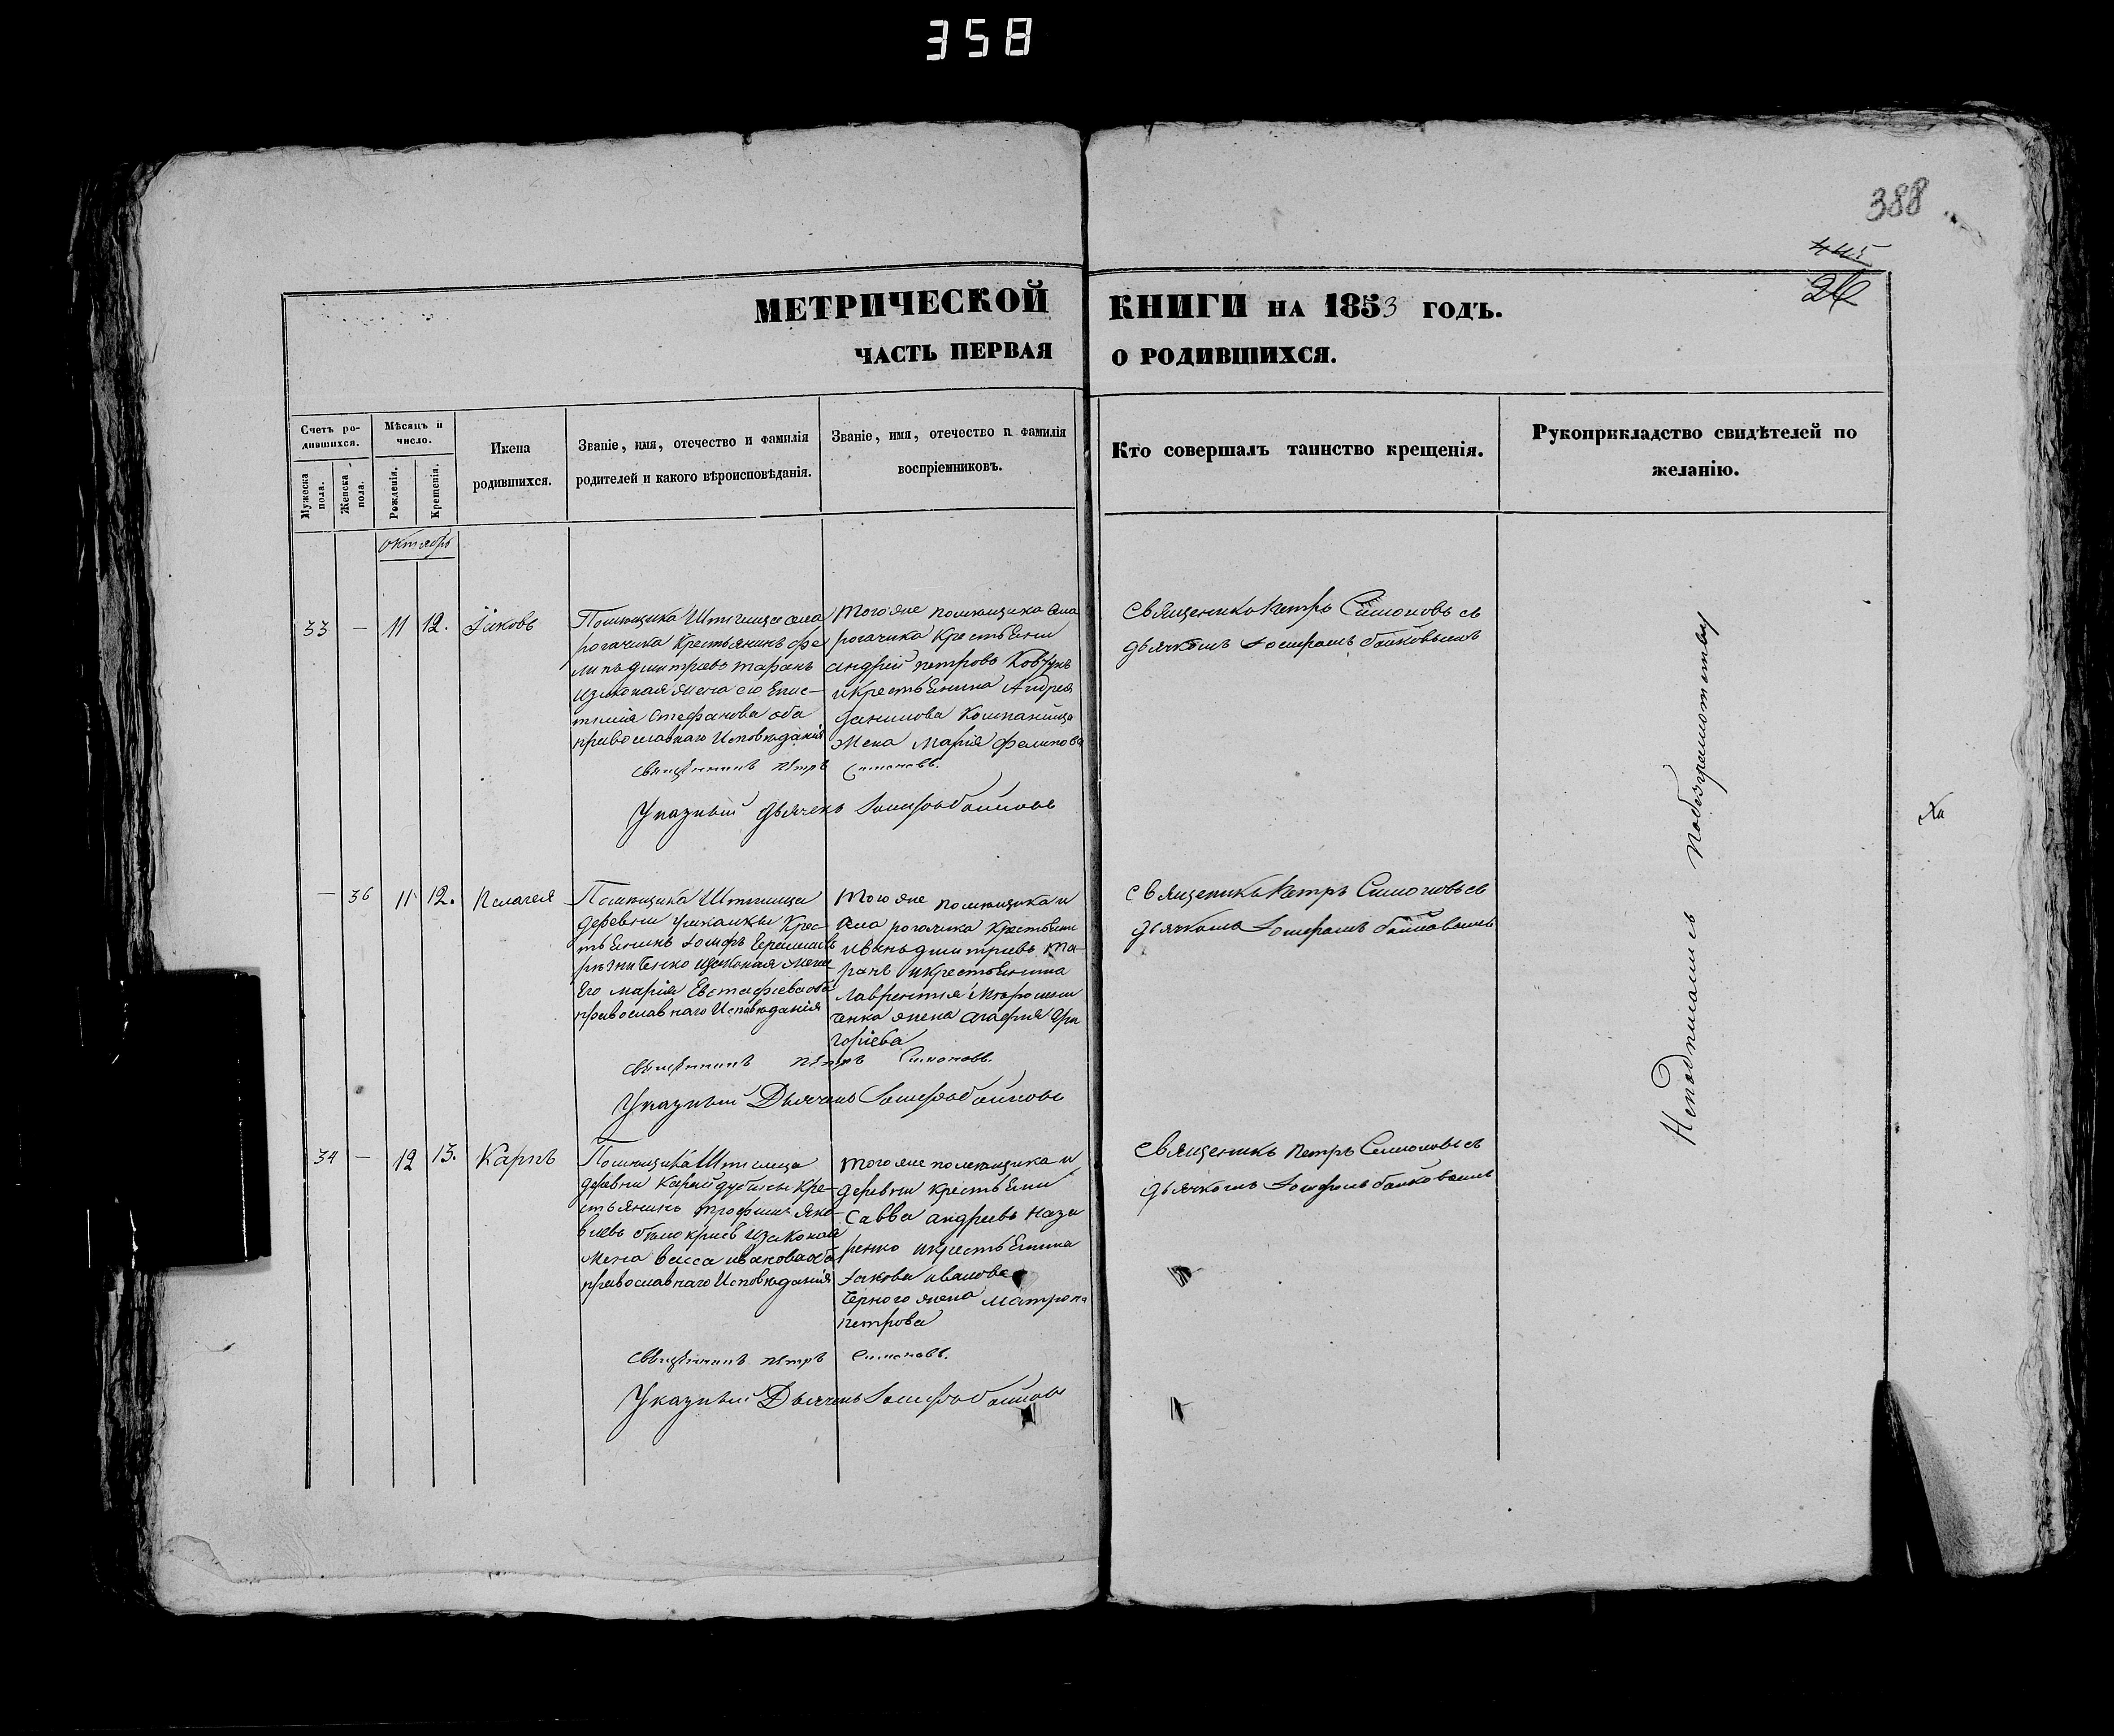 358
388
445
26
МЕТРИЧЕСКОЙ КНИГИ НА 1853 ГОДЪ.
ЧАСТЬ ПЕРВАЯ О РОДИВШИХСЯ.
Счетъ родившихся.
Мужеска пола.
Женска пола.
Мѣсяцъ и число.
Рожденія.
Крещенія.
Имена родившихся.
Званіе, имя, отечество и фамилія
родителей и какого вѣроисповѣданія.
Званіе, имя, отечество и фамилія
воспріемниковъ.
Кто совершалъ таинство крещенія.
Рукоприкладство свидѣтелей по
желанію.
октябрь
33 — 11 12. Іаковъ
Помѣщика села
рогачика Крестьянинъ фи
липъ дмитріевъ таранъ
изаконая жена его Епис-
тимія Стефанова оба
православнаго Исповѣданія
тогоже помѣщика села
рогачика Крестьяни
андрей петровъ Ковтунъ
икрестьянина Андрея
данилова Компанійца
Жена Марія Филипова
Священникъ петръ Симоновъ съ
дьячкомъ Іосифомъ байковымъ
священникъ пётръ Симоновъ.
Указный дьячекъ Іосифъ байковъ
— 36 11 12. Пелагея
Помѣщика
деревни Крес-
тьянинъ Іосифъ
изаконая жена
Его марія Евстафіева оба
православнаго Исповѣданія
Тогоже помѣщика и
села рогачика Крестьяни
иванъ дмитріевъ та-
ранъ икрестьянина
лаврентія
ченка жена агафія гри
горіева
Священикъ Петръ Симоновъ съ
дьячкомъ Іосифомъ байковымъ
священникъ пётръ Симоновъ.
Указный Дьячекъ Іосифъ байковъ
34 — 12 13. Карпъ
Помѣщика
деревни Карайдубины Кре-
стьянинъ трофимъ Яко-
влевъ изаконая
жена васса иванова оба
православнаго Исповѣданія
тогоже помѣщика и
деревни крестьяни
Савва андреевъ наза
ренко икрестьянина
Іакова иванова
Черного жена матрона
петрова
Священикъ Петръ Симоновъ съ
дьячкомъ Іосифомъ байковымъ
священникъ пётръ Симоновъ.
Указный Дьячекъ Іосифъ байковъ
Неподписались побезграмотству